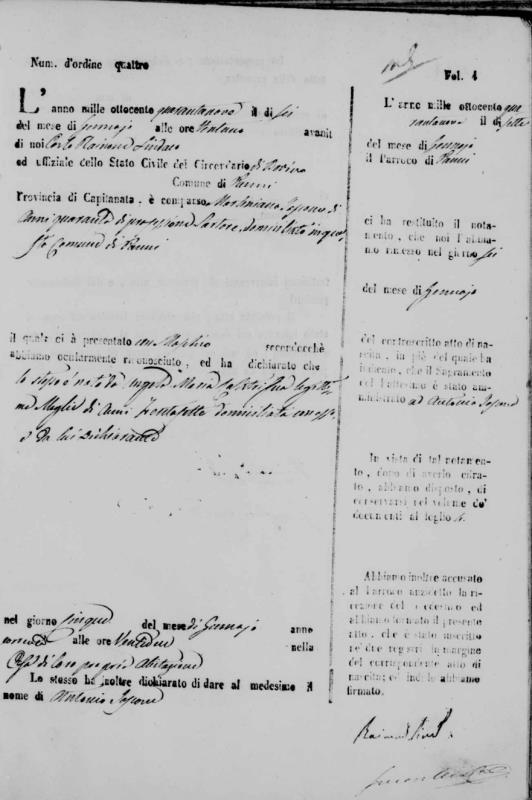 Num. d'ordine quattro
Vol. 1
L'anno mille ottocento quarantanove il di sei
del mese di Gennajo alle ore avanti
di noi Sindaco
ed uffiziale dello Stato Civile del Circondario di Bovino
Comune di Panni
Provincia di Capitanata, è comparso di
anni quaranta di professione Sartore domiciliato in que
sto Comune di Panni
il quale ci à presentato un Maschio secondochè
abbiamo ocularmente riconosciuto, ed ha dichiarato che
lo stesso è nato da Maria sua legitti
ma Moglie di anni trentasette domiciliata con esso
e da lui dichiarante
nel giorno cinque del mese di Gennajo anno
corrente alle ore Ventidue nella
Casa di loro propria Abitazione
Lo stesso ha inoltre dichiarato di dare al medesimo il
nome di Antonio
L'anno mille ottocento qua
rantanove il di sette
del mese di Gennajo
il Parroco di Panni
ci ha restituito il nota-
mento, che noi l'abbia-
mo rimesso nel giorno sei
del mese di Gennajo
del controscritto atto di na-
scita, in piè del quale ha
indicato, che il Sagramento
del Battesimo è stato am-
ministrato ad Antonio
In vista di tal notamen-
to, dopo di averlo cifra-
to, abbiamo disposto, di
conservarsi nel volume de'
documenti al foglio 4.
Abbiamo inoltre accusato
al Parroco anzidetto la ri-
cezione del medesimo ed
abbiamo formato il presente
atto, che è stato inscritto
ne' due registri in margine
del corrispondente atto di
nascita; ed indi lo abbiamo
firmato.